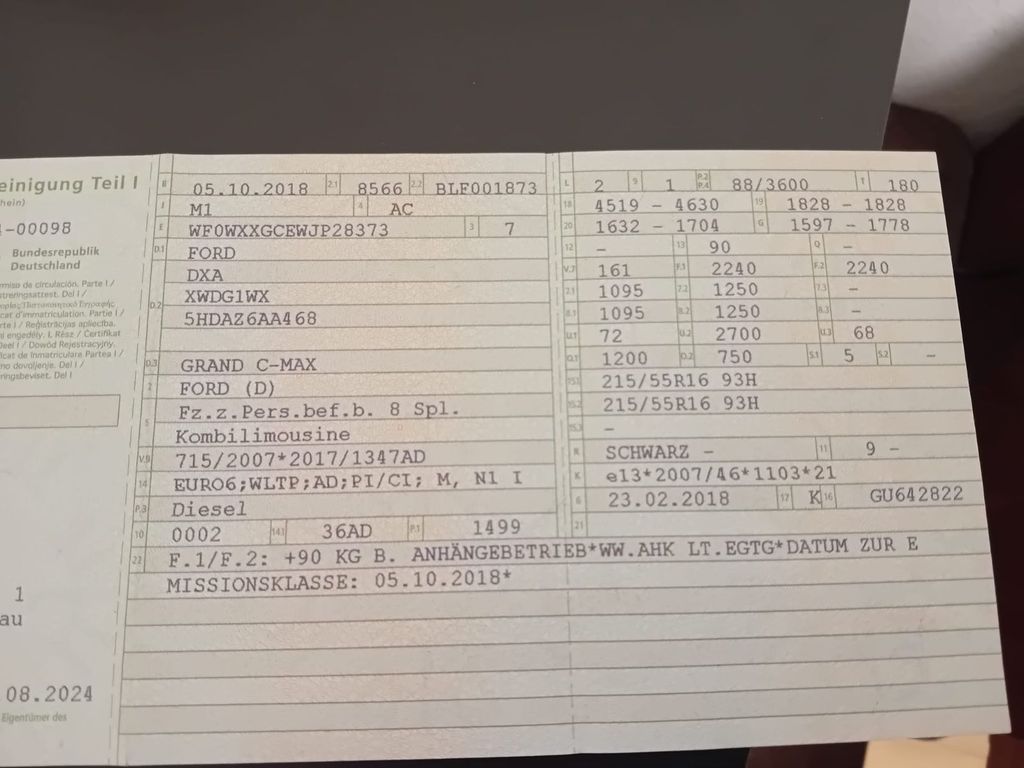 einigung Teil I
hein)
-00098
Bundesrepublik
Deutschland
miso de circulación. Parte I /
treringsattest. Del I /
cat d'immatriculation. Partie I /
rte I / Reģistrācijas apliecība.
i engedély. I. Rész / Certifikat
Deel I / Dowód Rejestracyjny.
icat de Inmatriculare Partea I /
no dovoljenje. Del I /
ringsbeviset. Del I
1
au
08.2024
Eigentümer des
B 05.10.2018 2.1 8566 2.2 BLF001873
J M1 4 AC
E WF0WXXGCEWJP28373 3 7
D.1 FORD
DXA
D.2 XWDG1WX
5HDAZ6AA468
D.3 GRAND C-MAX
2 FORD (D)
Fz.z.Pers.bef.b. 8 Spl.
5 Kombilimousine
V.9 715/2007*2017/1347AD
14 EURO6;WLTP;AD;PI/CI; M, N1 I
P.3 Diesel
10 0002 14.1 36AD P.1 1499
L 2 9 1 P.2 P.4 88/3600 T 180
18 4519 - 4630 19 1828 - 1828
20 1632 - 1704 G 1597 - 1778
12 - 13 90 Q -
V.7 161 F.1 2240 F.2 2240
7.1 1095 7.2 1250 7.3 -
8.1 1095 8.2 1250 8.3 -
U.1 72 U.2 2700 U.3 68
O.1 1200 O.2 750 S.1 5 S.2 -
15.1 215/55R16 93H
15.2 215/55R16 93H
15.3 -
R SCHWARZ - 11 9 -
K e13*2007/46*1103*21
6 23.02.2018 17 K 16 GU642822
21
22 F.1/F.2: +90 KG B. ANHÄNGEBETRIEB*WW.AHK LT.EGTG*DATUM ZUR E
MISSIONSKLASSE: 05.10.2018*